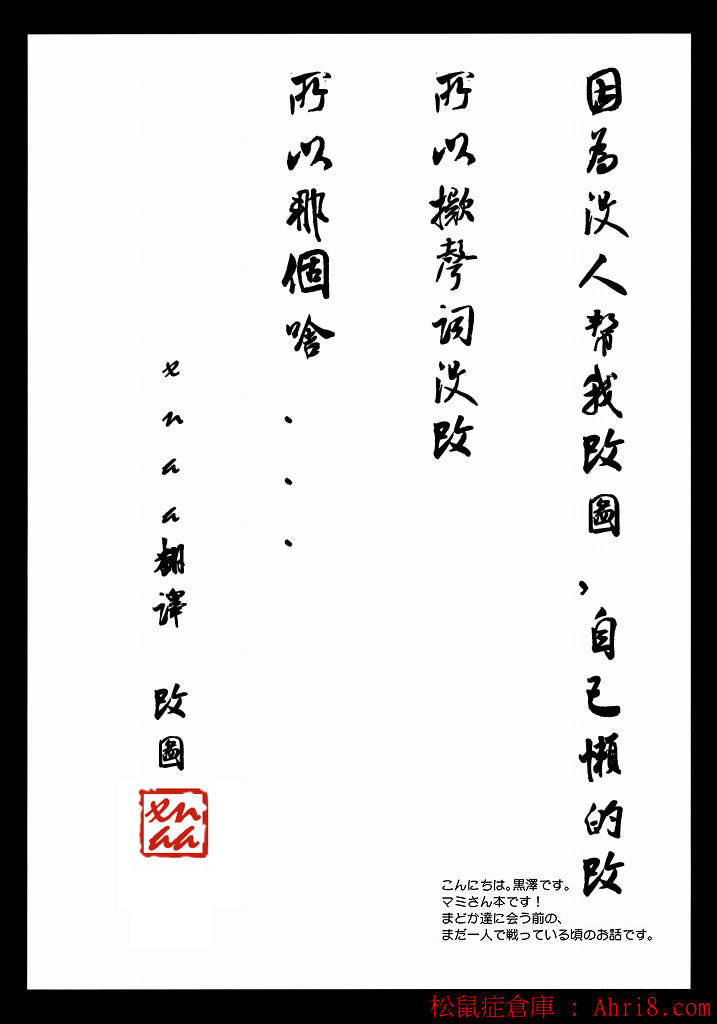 因為没人幫我改圖，自己懶的改
所以擬聲词没改
所以那個啥...
xnaa翻譯 改圖
xnaa
こんにちは。黒澤です。
マミさん本です！
まどか達に会う前の、
まだ一人で戦っている頃のお話です。
松鼠症倉庫 : Ahri8.com